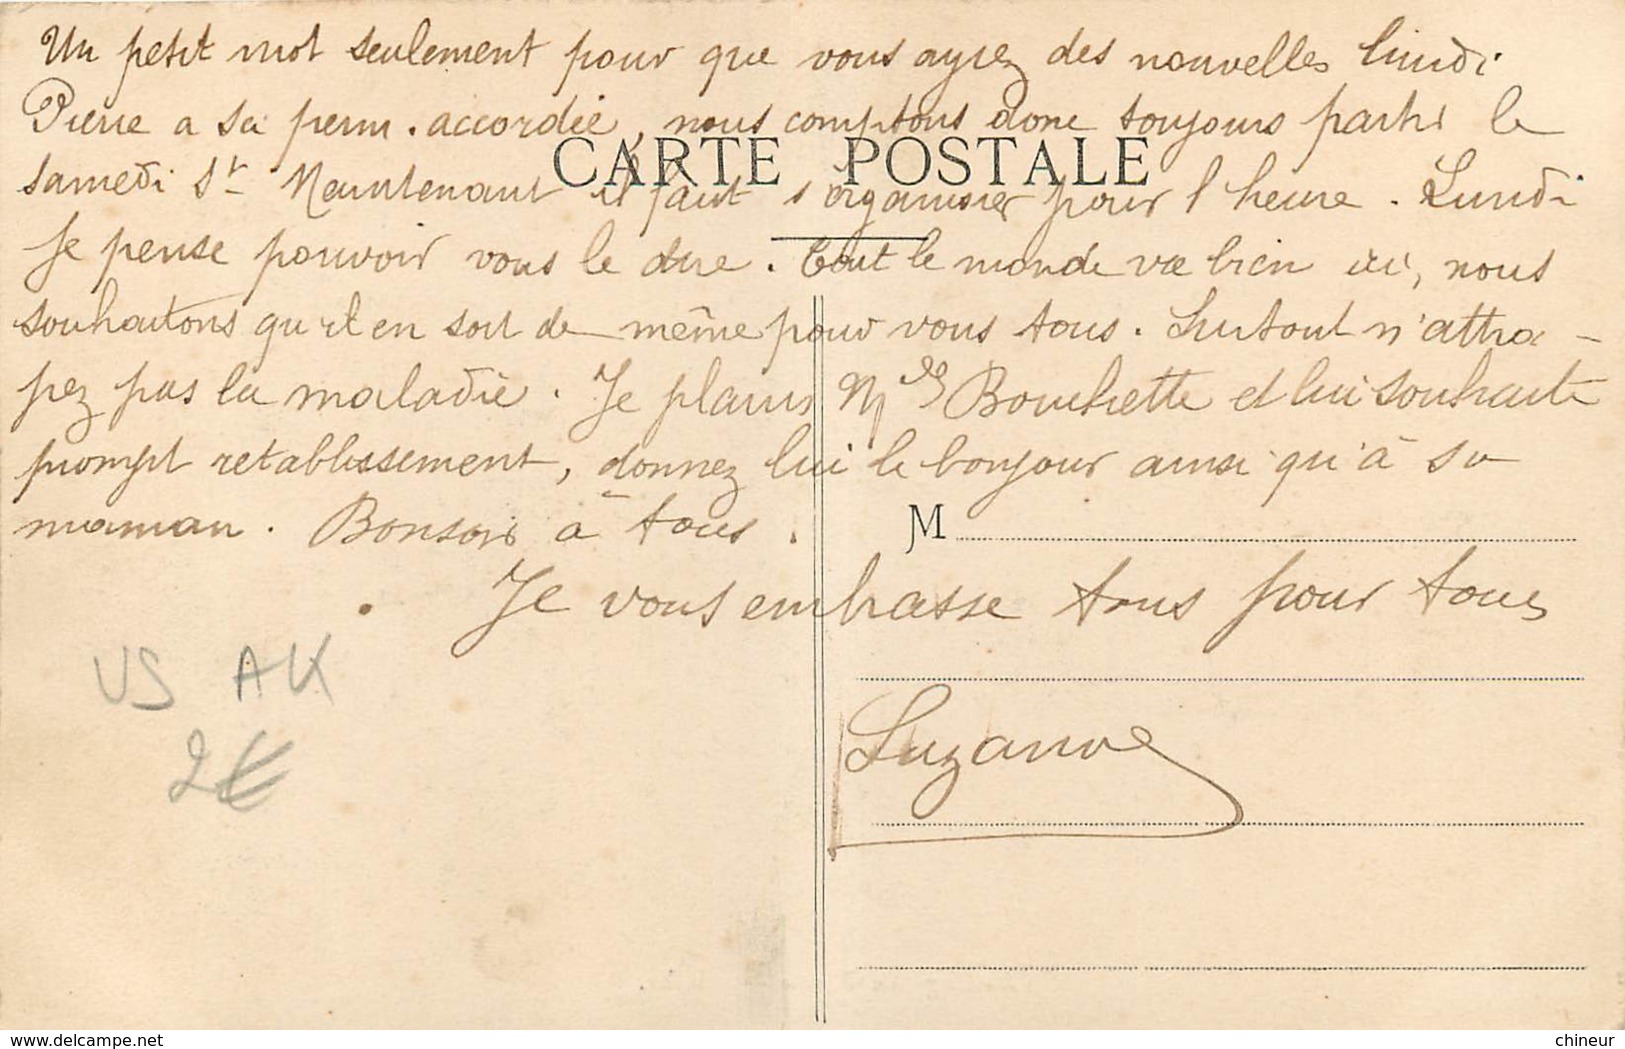 Un petit mot seulement pour que vous ayiez des nouvelles lundi.
Pierre a sa perm. accordée, nous comptons donc toujours partir le
CARTE POSTALE
samedi St. Maintenant il faut s'organiser pour l'heure. Lundi
Je pense pouvoir vous le dire. Tout le monde va bien ici, nous
souhaitons qu'il en soit de même pour vous tous. Surtout n'attra-
pez pas la maladie. Je plains Bouchette et lui souhaite
prompt retablissement, donnez lui le bonjour ainsi qu'à sa
maman. Bonsoir à tous.
M
Je vous embrasse tous pour tous
Suzanne
US AK
2€
www.delcampe.net
chineur